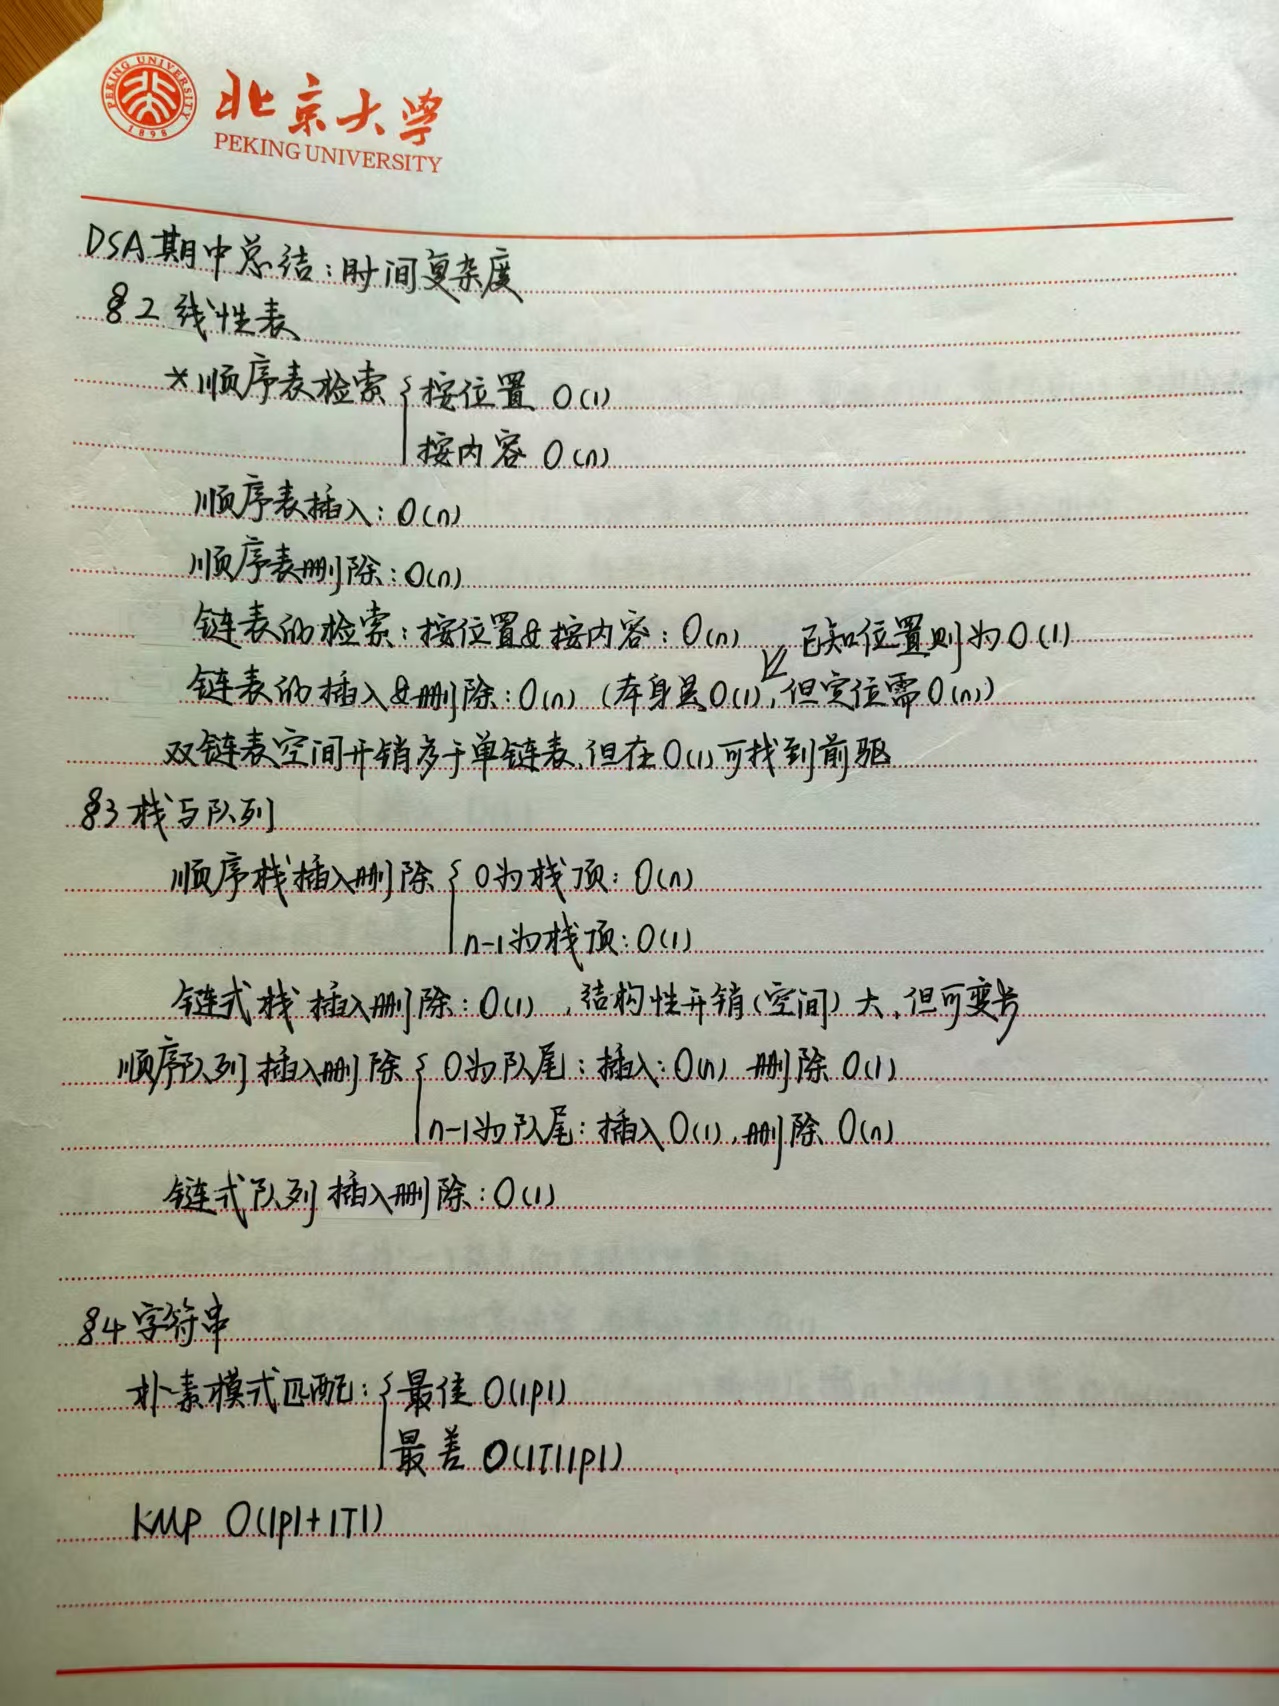 PEKING UNIVERSITY
1898
北京大学
PEKING UNIVERSITY
DSA期中总结:时间复杂度
§2 线性表
*顺序表检索{按位置 O(1)
按内容 O(n)
顺序表插入:O(n)
顺序表删除:O(n)
链表的检索:按位置&按内容:O(n)
已知位置则为O(1)
链表的插入&删除:O(n) (本身是O(1),但定位需O(n))
双链表空间开销多于单链表,但在O(1)可找到前驱
§3 栈与队列
顺序栈插入删除{0为栈顶:O(n)
n-1为栈顶:O(1)
链式栈插入删除:O(1),结构性开销(空间)大,但可变长
顺序队列插入删除{0为队尾:插入:O(n) 删除O(1)
n-1为队尾:插入O(1),删除O(n)
链式队列插入删除:O(1)
§4 字符串
朴素模式匹配:{最佳 O(|P|)
最差 O(|T||P|)
KMP O(|P|+|T|)